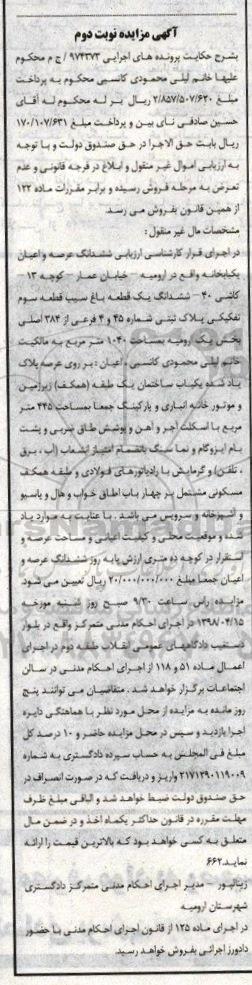 آگهی مزایده نوبت دوم
بشرح حکایت پرونده های اجرایی ۹۷۴۳۷۳ / ج م محکوم
علیها خانم لیلی محمودی کاسبی محکوم به پرداخت
مبلغ ۲/۸۵۷/۵۰۷/۶۲۰ ریال بر له محکوم له آقای
حسین صادقی نای بین و پرداخت مبلغ ۱۷۰/۱۰۷/۶۳۱
ریال بابت حق الاجرا در حق صندوق دولت و با توجه
به ارزیابی اموال غیر منقول و ابلاغ در فرجه قانونی و عدم
تعرض به مرحله فروش رسیده و برابر مقررات ماده ۱۲۲
از همین قانون بفروش می رسد
مشخصات مال غیر منقول :
در اجرای قرار کارشناسی ارزیابی ششدانگ عرصه و اعیان
یکبابخانه واقع در ارومیه – خیابان عمار – کوچه ۱۳ –
کاشی ۴۰ – ششدانگ یک قطعه باغ سیب قطعه سوم
تفکیکی پلاک ثبتی شماره ۴۵ و ۴ فرعی از ۳۸۴ اصلی
بخش یک ارومیه بمساحت ۱۰۴۰ متر مربع به مالکیت
خانم لیلی محمودی کاسبی ، اعیان : بر روی عرصه پلاک
یاد شده یکباب ساختمان یک طبقه (همکف) زیرزمین
و موتور خانه انباری و پارکینگ جمعا بمساحت ۴۴۵ متر
مربع با اسکلت آجر و آهن و پوشش طاق ضربی و پشت
بام ایزوگام و نما سنگ بانضمام امتیاز انشعاب (آب ، برق
، تلفن) و گرمایش با رادیاتورهای فولادی و طبقه همکف
مسکونی مشتمل بر چهار باب اطاق خواب و هال و پاسیو
و آشپزخانه و سرویس می باشد . با عنایت به موارد یاد
شده و موقعیت محلی و کیفیت اعیانی و مساحت عرصه و
استقرار در کوچه ده متری ارزش پایه روز ششدانگ عرصه و
اعیان جمعا مبلغ ۲۰/۰۰۰/۰۰۰/۰۰۰ ریال تعیین می شود.
مزایده راس ساعت ۹/۳۰ صبح روز شنبه مورخه
۱۳۹۸/۰۴/۱۵ در اجرای احکام مدنی متمرکز واقع در بلوار
دستغیب دادگاههای عمومی انقلاب طبقه دوم در اجرای
اعمال ماده ۵۱ و ۱۱۸ از اجرای احکام مدنی در سالن
اجتماعات برگزار خواهد شد . متقاضیان می توانند پنج
روز مانده به مزایده از محل مورد نظر با هماهنگی دایره
اجرا بازدید و سپس در محل مزایده حاضر و ۱۰ درصد کل
مبلغ فی المجلس به حساب سپرده دادگستری به شماره
۲۱۷۱۲۹۰۱۱۹۰۰۹ واریز و دریافت که در صورت انصراف در
حق صندوق دولت ضبط خواهد شد و الباقی مبلغ ظرف
مهلت مقرره در قانون حداکثر یکماه اخذ و در ضمن مال
متعلق به کسی خواهد بود که بالاترین قیمت را ارائه
نماید.۶۶۲
زینالپور – مدیر اجرای احکام مدنی متمرکز دادگستری
شهرستان ارومیه
در اجرای ماده ۱۲۵ از قانون اجرای احکام مدنی با حضور
دادورز اجرائی بفروش خواهد رسید.